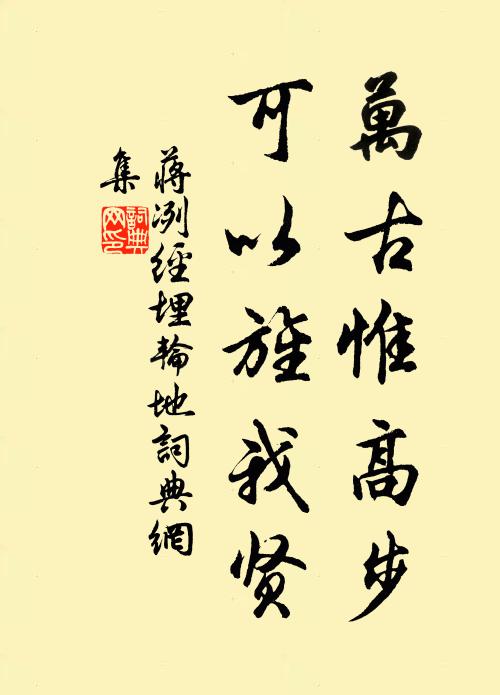 萬古惟高步
可以旌我贤
蒋冽經埋輪地詞典網
集
詞典網印